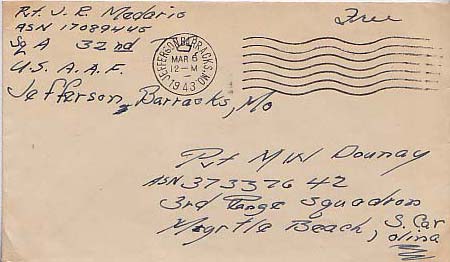 Pvt. J. E. Medario
ASN 17089446
Sq A 32nd
U.S. A.A.F.
Jefferson Barracks, Mo
Free
JEFFERSON BARRACKS, MO.
MAR 6
12-M
1943
Pvt M W Dounay
ASN 37337642
3rd Range Squadron
Myrtle Beach, S. Car
olina